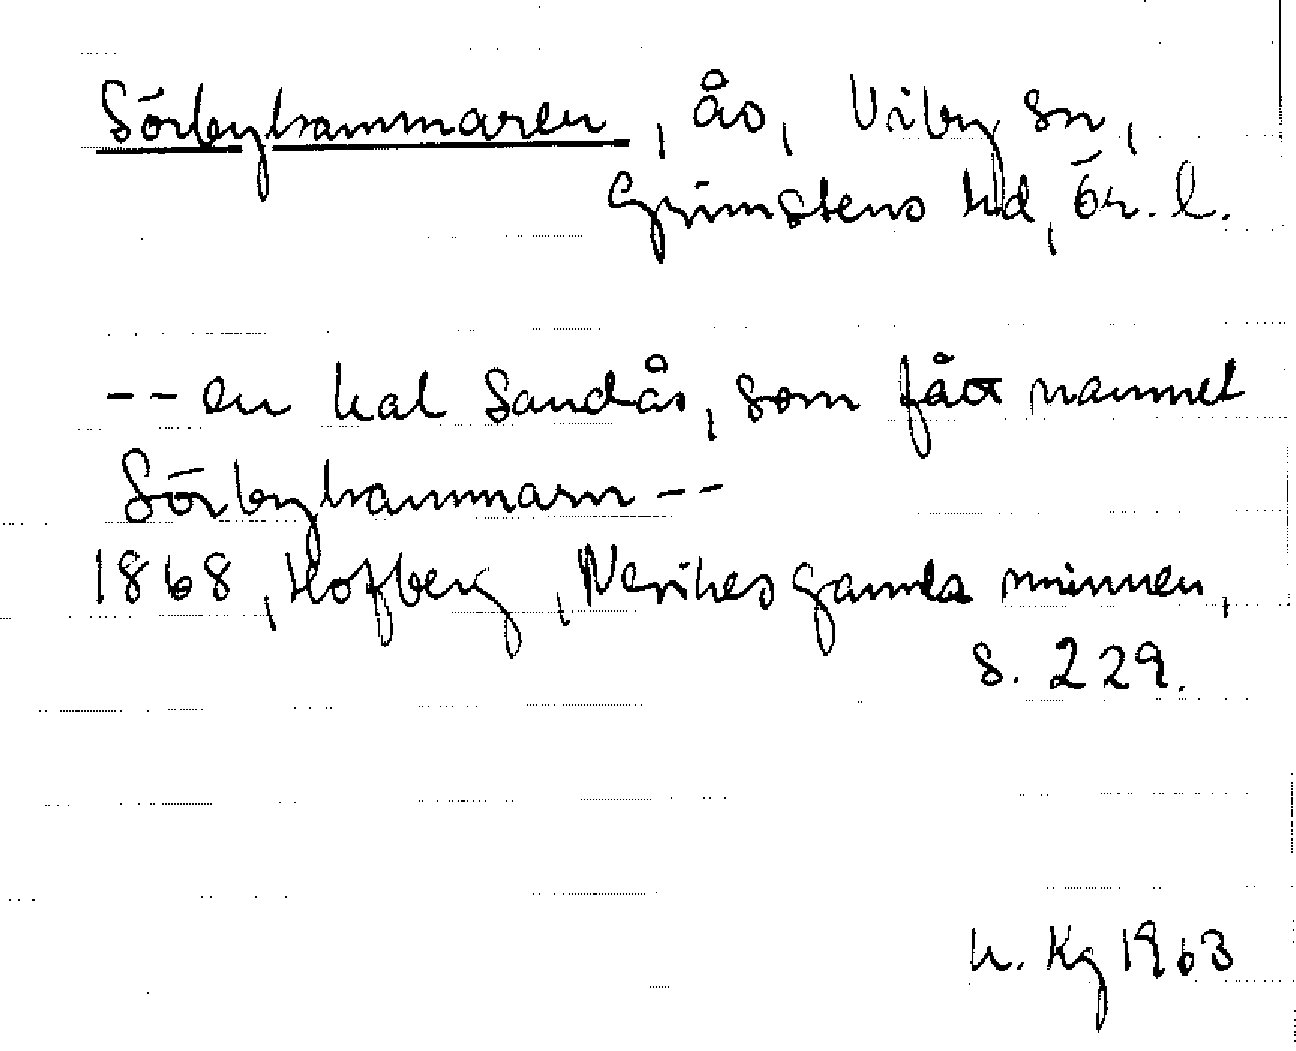 Sörbyhammaren, ås, Viby sn,
Grimstens hd, Ör. l.
-- en kal sandås, som fått namnet
Sörbyhammarn --
1868, Hofberg, Nerikes gamla minnen,
s. 229.
h. Kg 1963